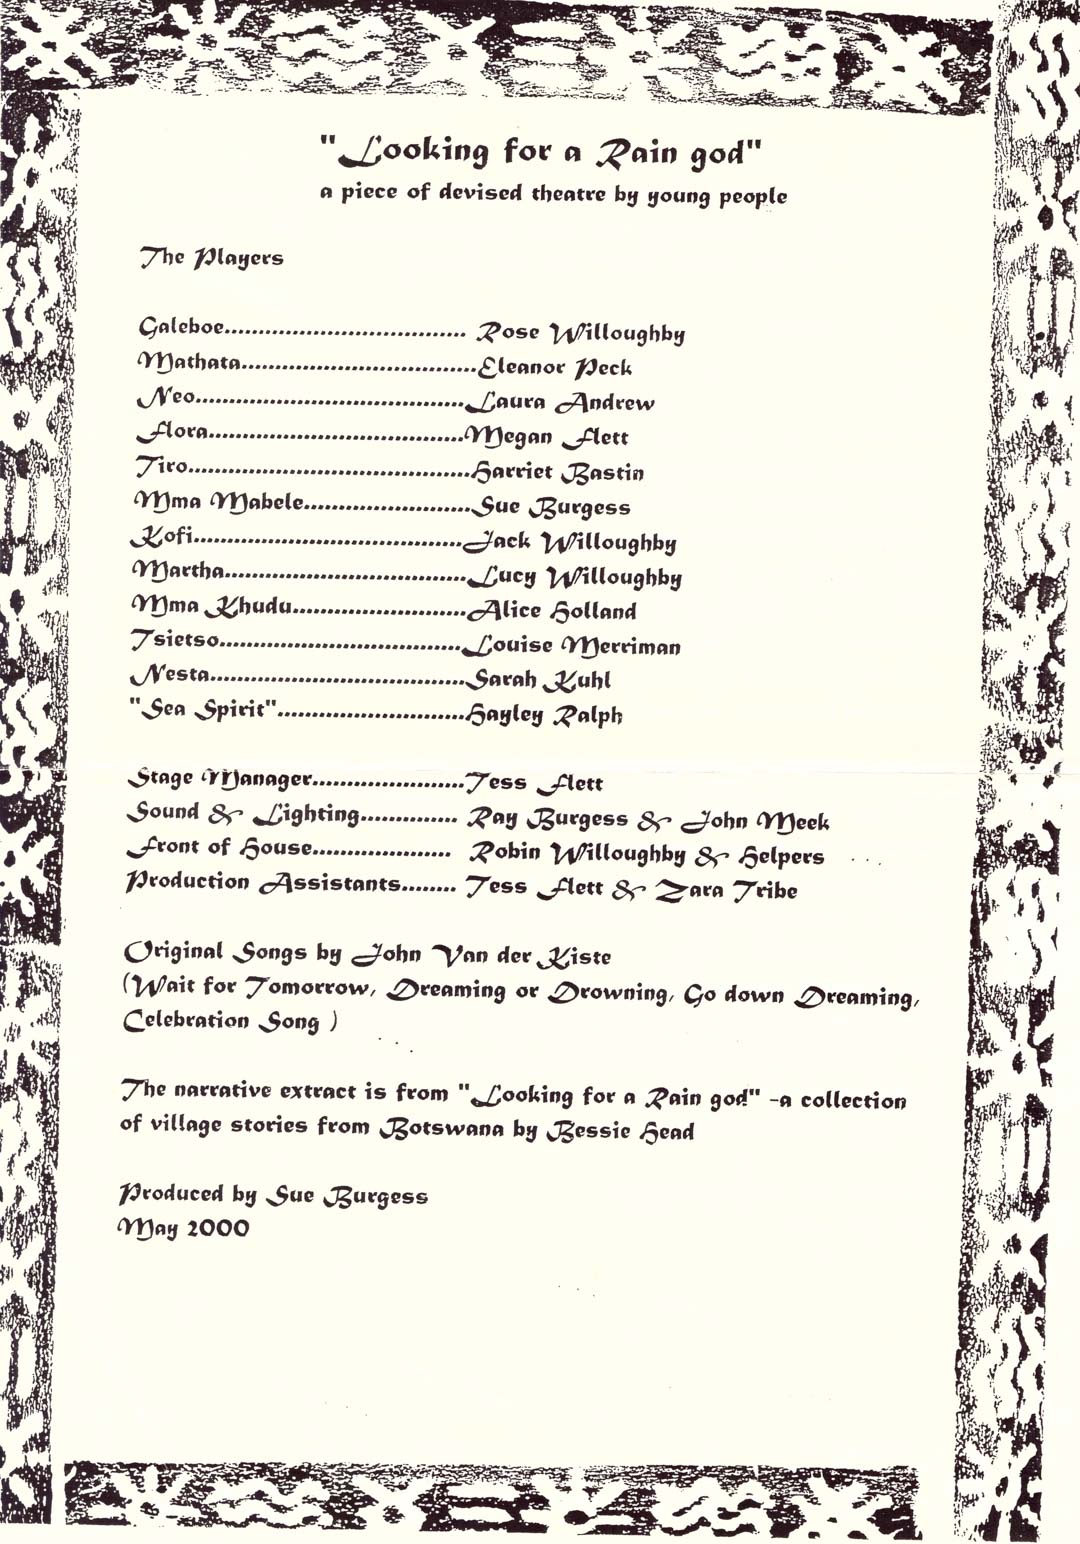 "Looking for a Rain god"
a piece of devised theatre by young people
The Players
Galeboe................................... Rose Willoughby
Mathata..................................Eleanor Peck
Neo.......................................Laura Andrew
Flora.....................................Megan Flett
Tiro.........................................Harriet Bastin
Mma Mabele........................Sue Burgess
Kofi.......................................Jack Willoughby
Martha...................................Lucy Willoughby
Mma Khudu.........................Alice Holland
Tsietso...................................Louise Merriman
Nesta.....................................Sarah Kuhl
"Sea Spirit"...........................Hayley Ralph
Stage Manager......................Tess Flett
Sound & Lighting.............. Ray Burgess & John Meek
Front of House.................... Robin Willoughby & Helpers
Production Assistants........ Tess Flett & Zara Tribe
Original Songs by John Van der Kiste
(Wait for Tomorrow, Dreaming or Drowning, Go down Dreaming,
Celebration Song )
The narrative extract is from "Looking for a Rain god" -a collection
of village stories from Botswana by Bessie Head
Produced by Sue Burgess
May 2000